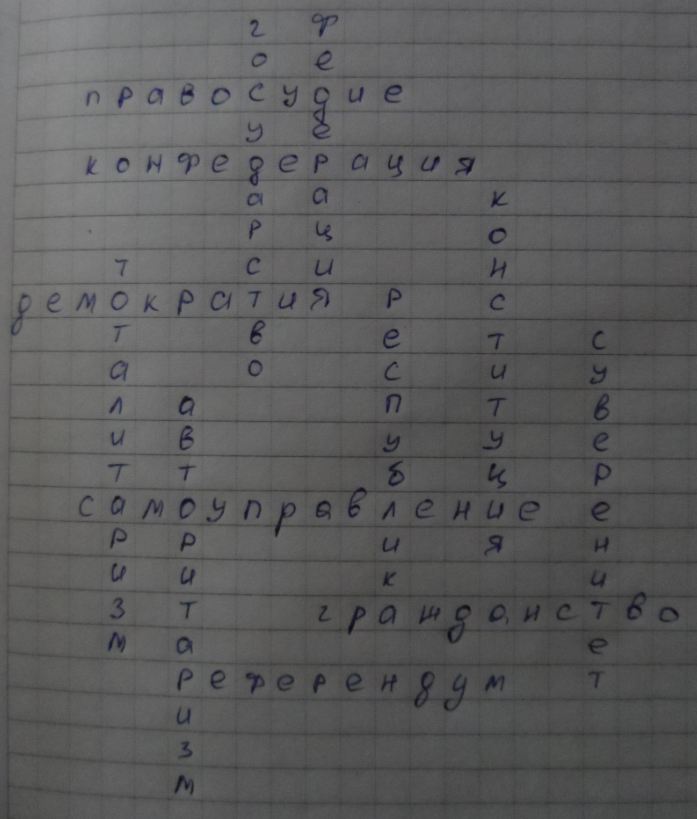 государство
федерация
правосудие
конфедерация
конституция
тоталитаризм
демократия
республика
суверенитет
авторитаризм
самоуправление
гражданство
референдум